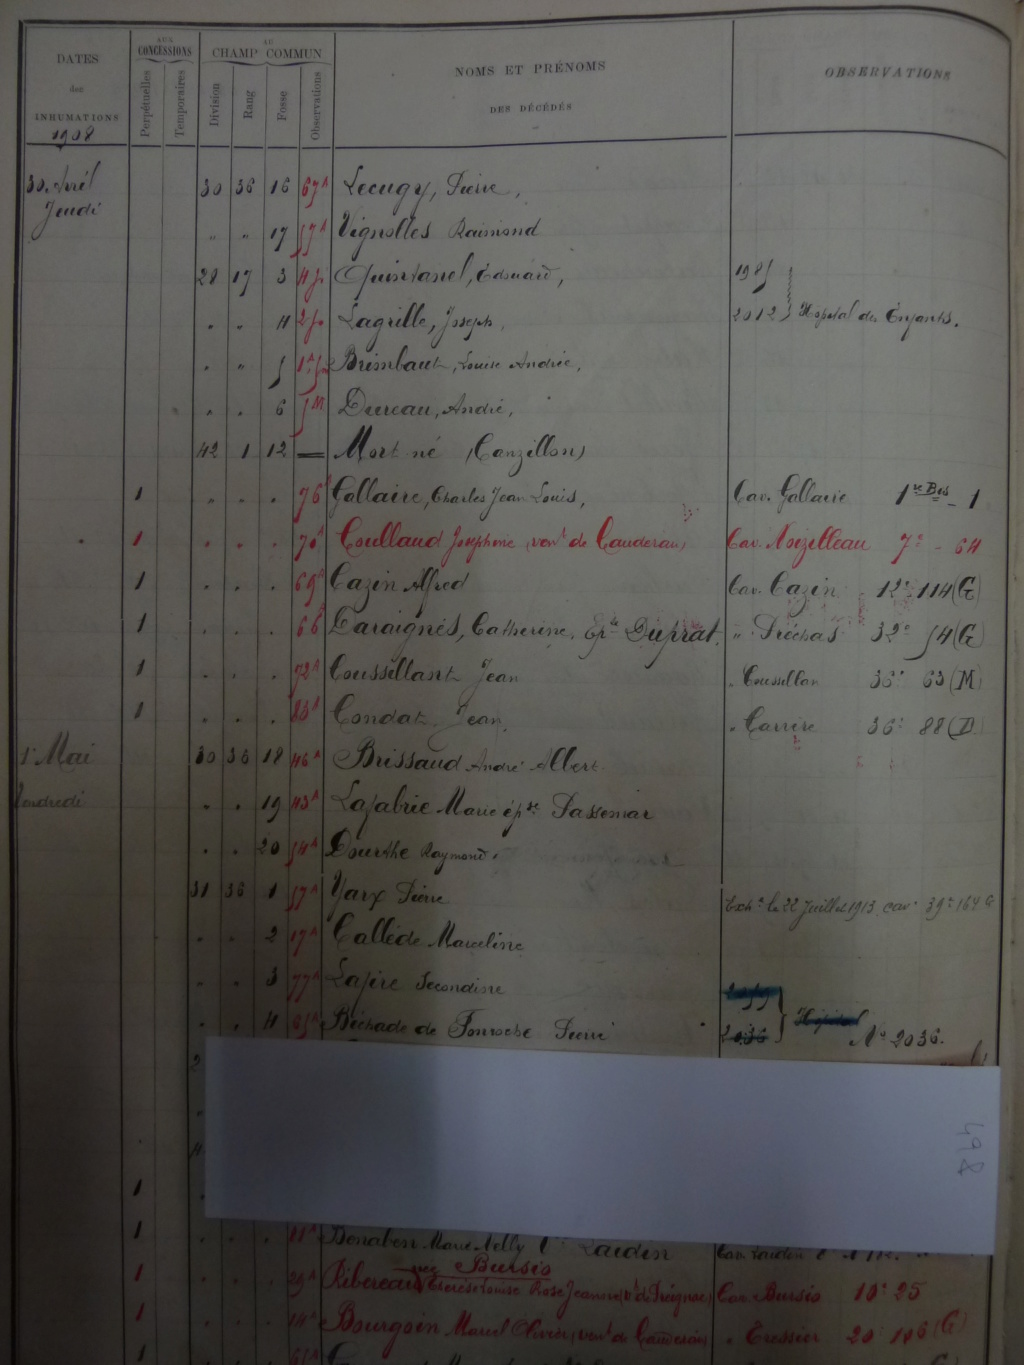 DATES des INHUMATIONS 1908
AUX CONCESSIONS
Perpétuelles Temporaires
AU CHAMP COMMUN
Division Rang Fosse Observations
NOMS ET PRÉNOMS DES DÉCÉDÉS
OBSERVATIONS
30. Avril 30 36 16 67A Lecugy, Pierre,
Jeudi
" " 17 57A Vignolles Raimond
28 17 3 4 Quintanel, Édouard, 1985
" " 4 2 Lagrille, Joseph, 2012 } Hôpital des Enfants.
" " 5 Brimbaut, Louise Andrée,
" " 6 5M Dureau, André,
42 1 12 — Mort-né (Canzillon)
1 " " " 76A Gallaire, Charles Jean Louis, Cav. Gallaire 1re Bes - 1
1 " " " 70A Coullaud Josephine (vent de Cauderan) Cav. Noizilleau 7e - 64
1 " " " 69A Cazin Alfred Cav. Cazin 12e 114 (G)
1 " " " 66A Daraignés, Catherine, Epse Duprat. " Dréchas 32e 54 (G)
1 " " " 72A Coussillant Jean " Coussillan 36e 63 (M)
1 " " " 83A Condat Jean, " Carrire 36e 88 (D)
1er Mai 30 36 18 46A Brissaud André Albert
Vendredi " " 19 43A Lafabrie Marie épse Passemar
" " 20 54A Dourthe Raymond.
31 36 1 57A Yarx Pierre Exh. le 22 Juillet 1913. cav. 39e 164 G
" " 2 17A Callède Marceline
" " 3 77A Lafire Secondine
" " 4 65A Béchade de Fonroche Pierre 2036 } Hôpital No 2036.
498
1
1 " " " 11A Bonaben Marie Nelly Laidin Cav. Laidin
née Bursis
1 " " " 29A Ribereau Thérèse Louise Rose Jeanne (vt de Preignac) Cav. Bursis 10e 25
1 " " " 14A Bourgoin Marcel Olivier (vent de Cauderan) " Tressier 20e 106 (G)
1